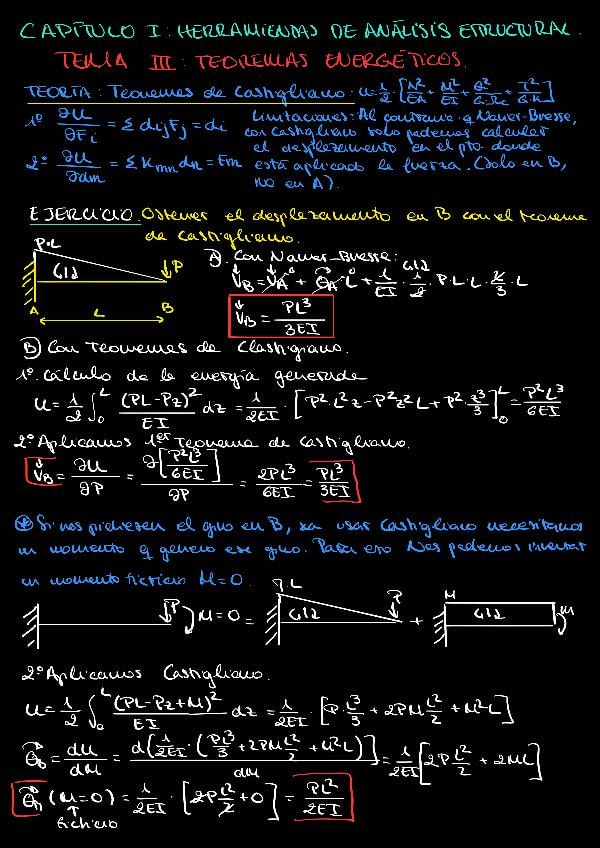 CAPÍTULO I: HERRAMIENTAS DE ANÁLISIS ESTRUCTURAL.
TEMA III: TEOREMAS ENERGÉTICOS.
TEORÍA: Teoremas de Castigliano: u = 1/2 · [N²/EA + M²/EI + Q²/G·Ωc + T²/G·K]
1º ∂u/∂Fi = Σ dij Fj = di
Limitaciones: Al contrario q Navier-Bresse,
con castigliano solo podemos calcular
el desplazamiento en el pto donde
2º ∂u/∂dm = Σ Kmn dn = Fm
está aplicado la fuerza. (Solo en B,
no en A).
EJERCICIO. Obtener el desplazamiento en B con el teorema
de Castigliano.
P·L
G12
P
A
L
B
A) Con Navier-Bresse:
VB = VA⁰ + θA⁰·L + 1/EI · G12 1/2 · P·L·L · 2/3 · L
VB = PL³/3EI
B) Con Teoremas de Clastigiano.
1º. Cálculo de la energía generada
u = 1/2 ∫₀ᴸ (PL-Pz)²/EI dz = 1/2EI · [P²·L²z - P²z²L + P²·z³/3]₀ᴸ = P²L³/6EI
2º Aplicamos 1er Teorema de Castigliano.
VB = ∂u/∂P = ∂[P²L³/6EI]/∂P = 2PL³/6EI = PL³/3EI
* Si nos pidiesen el giro en B, xa usar Castigliano necesitamos
un momento q genere ese giro. Para eso Nos podemos inventar
un momento ficticio M=0.
P M=0 = P.L G12 P + M G12 M
2º Aplicamos Castigliano.
u = 1/2 ∫₀ᴸ (PL-Pz+M)²/EI dz = 1/2EI · [P·L³/3 + 2PM L²/2 + M²L]
θB = du/dM = d(1/2EI · (PL³/3 + 2PM L²/2 + M²L))/dM = 1/2EI [2P L²/2 + 2ML]
θB (M=0) = 1/2EI · [2P L²/2 + 0] = PL²/2EI
ficticio